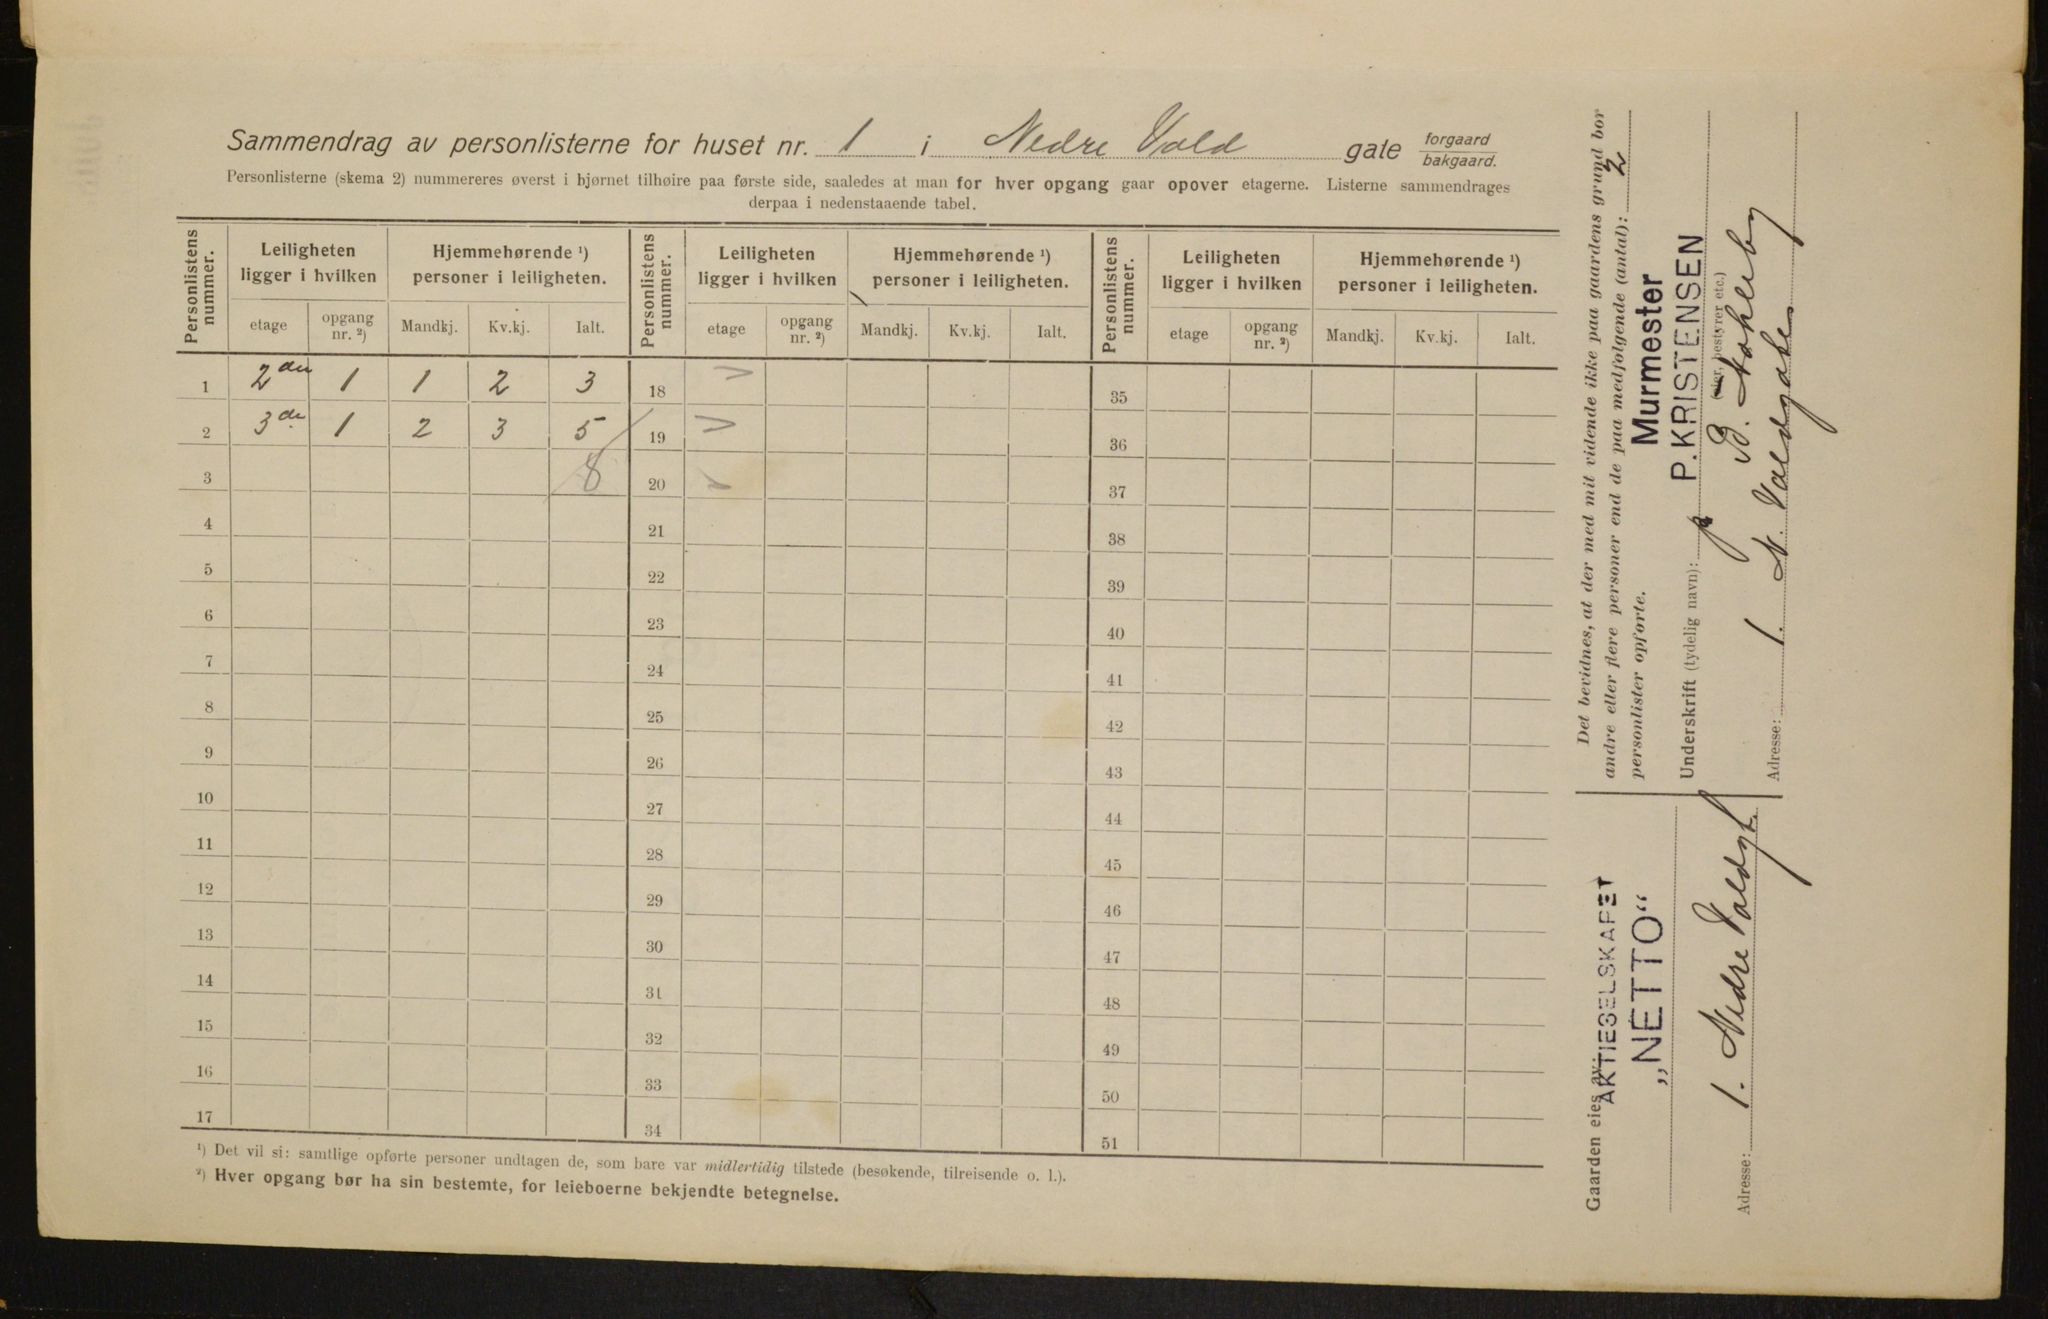 Sammendrag av personlisterne for huset nr. 1 i Nedre Vold gate forgaard/bakgaard.
Personlisterne (skema 2) nummereres øverst i hjørnet tilhøire paa første side, saaledes at man for hver opgang gaar opover etagerne. Listerne sammendrages
derpaa i nedenstaaende tabel.
Personlistens nummer. Leiligheten ligger i hvilken Hjemmehørende ¹) personer i leiligheten. Personlistens nummer. Leiligheten ligger i hvilken Hjemmehørende ¹) personer i leiligheten. Personlistens nummer. Leiligheten ligger i hvilken Hjemmehørende ¹) personer i leiligheten.
etage opgang nr. ²) Mandkj. Kv.kj. Ialt. etage opgang nr. ²) Mandkj. Kv.kj. Ialt. etage opgang nr. ²) Mandkj. Kv.kj. Ialt.
1 2den 1 1 2 3 18 35
2 3de 1 2 3 5 19 36
3 8 20 37
4 21 38
5 22 39
6 23 40
7 24 41
8 25 42
9 26 43
10 27 44
11 28 45
12 29 46
13 30 47
14 31 48
15 32 49
16 33 50
17 34 51
¹) Det vil si: samtlige opførte personer undtagen de, som bare var midlertidig tilstede (besøkende, tilreisende o. l.).
²) Hver opgang bør ha sin bestemte, for leieboerne bekjendte betegnelse.
Det bevidnes, at der med mit vidende ikke paa gaardens grund bor
andre eller flere personer end de paa medfølgende (antal): 2
personlister opførte.
Murmester
P. KRISTENSEN
Underskrift (tydelig navn):
(eier, bestyrer etc.)
Adresse: 1. N. Voldgate
Gaarden eies av:
AKTIESELSKAPET
„NETTO“
Adresse: 1. Nedre Voldgt.